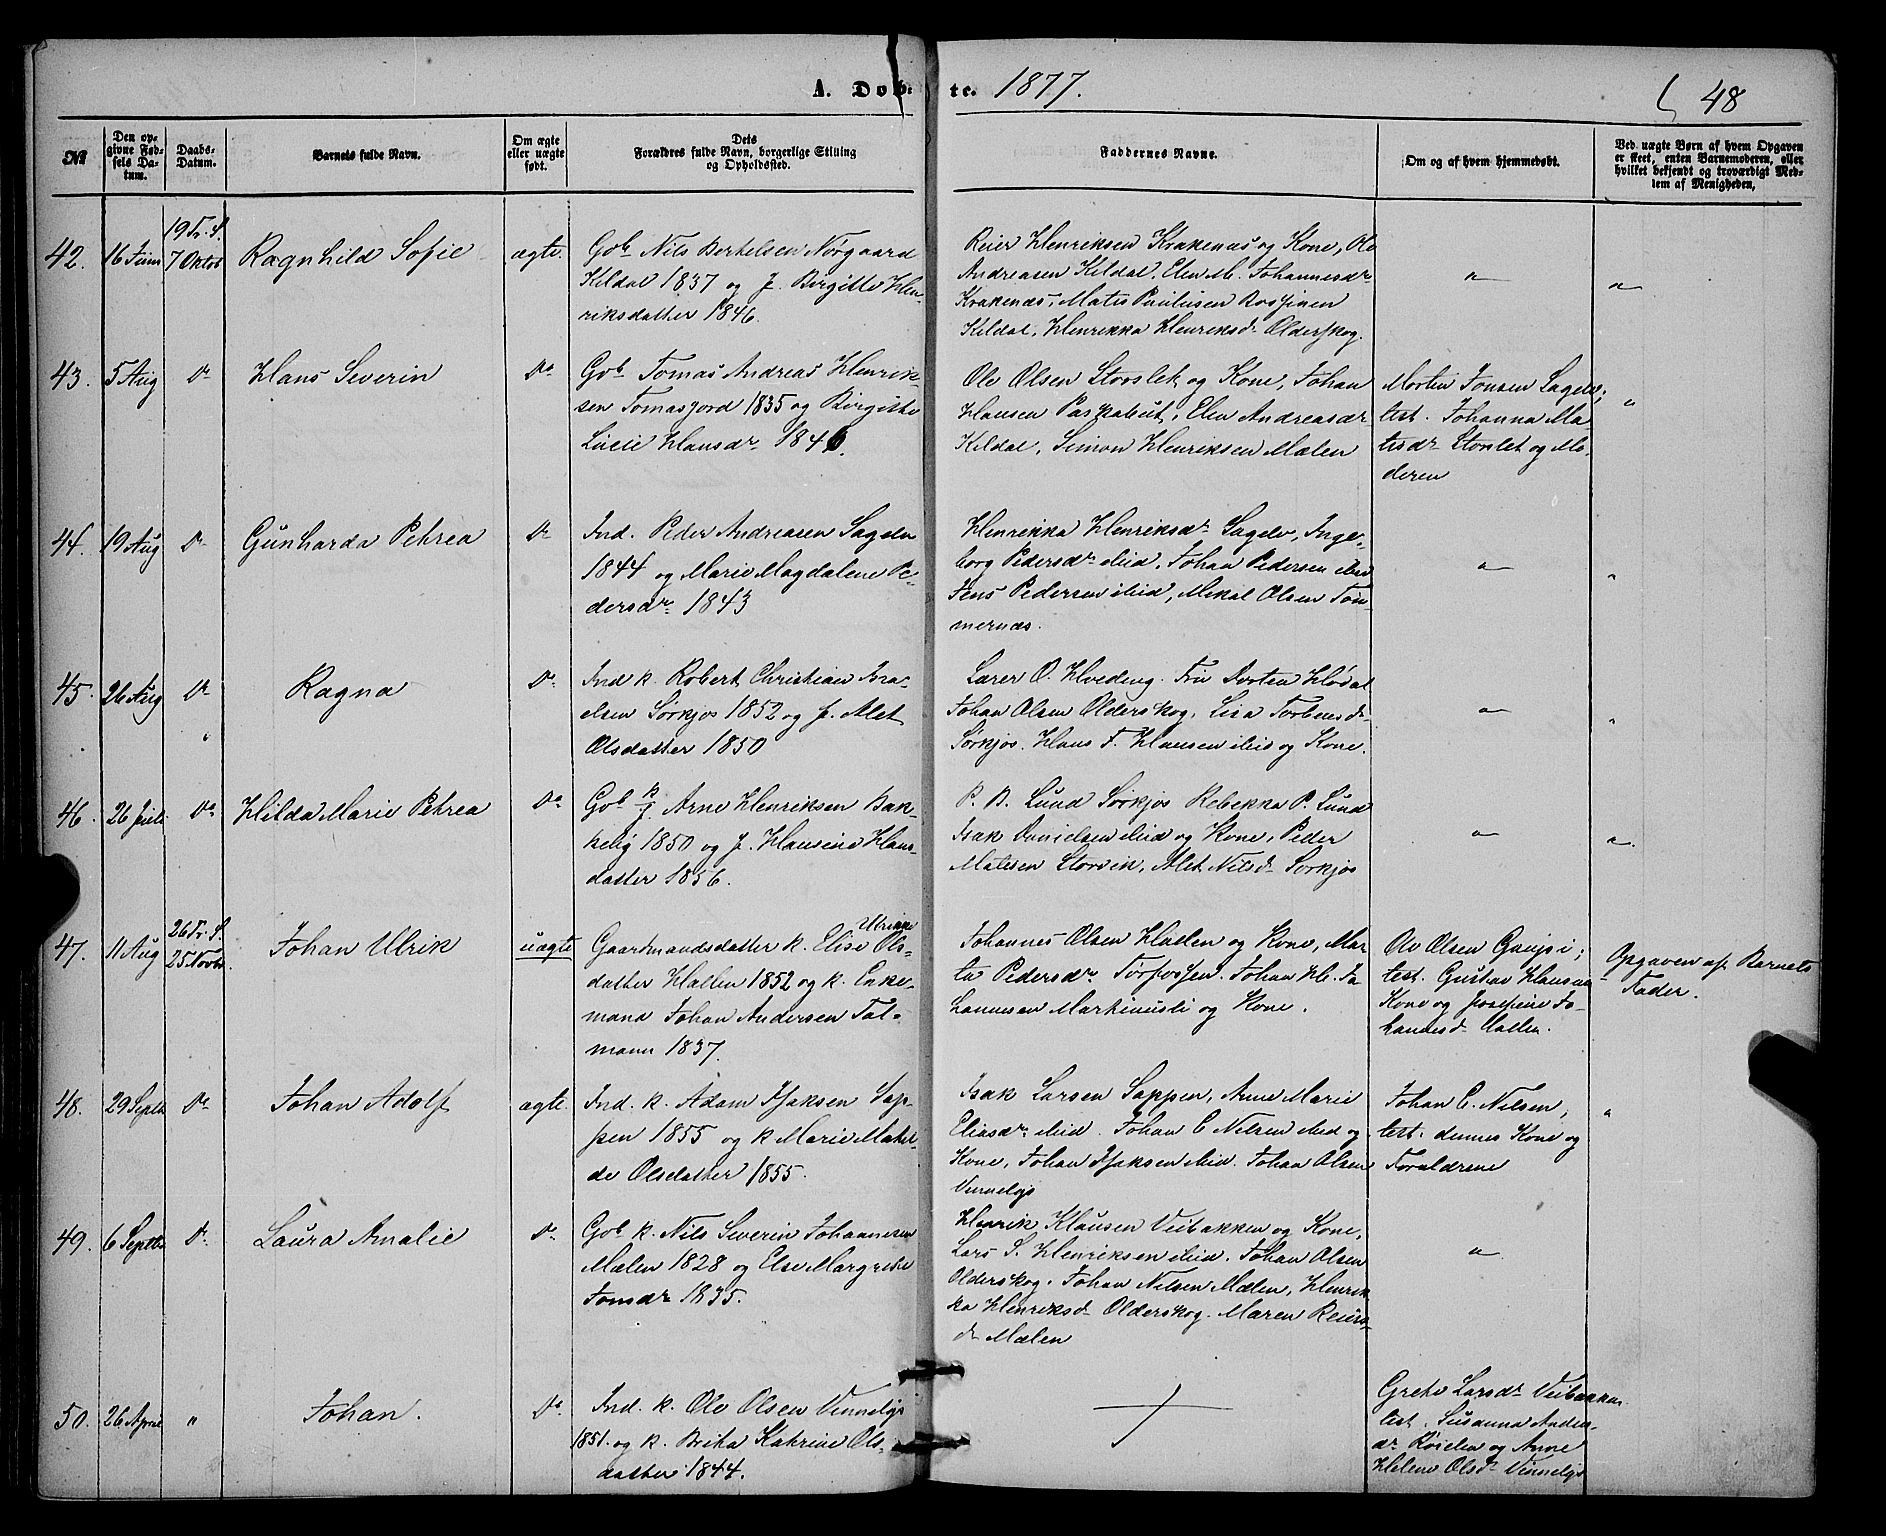 A. Døbte. 1877. 48
№
Den opgivne Fødsels Datum.
Daabs-Datum.
Barnets fulde Navn.
Om ægte eller uægte født.
Dets Forældres fulde Navn, borgerlige Stilling og Opholdssted.
Faddernes Navne.
Om og af hvem hjemmedøbt.
Ved uægte Børn af hvem Opgaven er skeet, enten Barnemoderen, eller hvilket bekjendt og troværdigt Medlem af Menigheden.
42. 16 Juni 19 Tr. S. 7 Oktob Ragnhild Sofie ægte.
Gbb Nils Bertelsen Nørgaard
Kildal 1837 og J. Birgitte Hen-
riksdatter 1846.
Reier Henriksen Krakenæs og Kone, Ole
Andreasen Kildal, Elen M. Johannesdr
Krakenæs, Mates Paulusen Bossinen
Kildal, Henrikka Henriksdr Olderskog.
"
"
43. 5 Aug Do Hans Severin Do
Gbb Tomas Andreas Henrik-
sen Tomasjord 1835 og Birgitte
Lucie Hansdr 1846.
Ole Olsen Storslet og Kone, Johan
Hansen Paskabut, Elen Andreasdr
Kildal, Simon Henriksen Mælen
Morten Jonsen Sagelv;
test. Johanna Ma-
tisdr Storslet og Mo-
deren
"
44. 19 Aug Do Gunharda Petrea Do
Ind. Peder Andreasen Sagelv
1844 og Marie Magdalene Pe-
dersdr 1843
Henrikka Henriksdr Sagelv, Inge-
borg Pedersdr ibid, Johan Pedersen ibid
Jens Pedersen ibid, Mikal Olsen Tøm-
mernæs.
"
"
45. 26 Aug Do Ragna Do
Ind k. Robert Christian Isra-
elsen Sørkjos 1852 og J. Alet
Olsdatter 1850
Lærer O. Hveding. Fru Dorten Hødal
Johan Olsen Olderskog, Lisa Torbensdr
Sørkjos, Hans F. Hansen ibid og Kone.
"
"
46. 26 Juli Do Hilda Marie Petrea Do
Gbb k J. Arne Henriksen Bak-
kelig 1850 og J. Hansine Hans-
datter 1856.
P. B. Lund Sørkjos Rebekka P. Lund
Isak Danielsen ibid og Kone, Peder
Matesen Storvik, Alet Nilsdr Sørkjos
"
"
47. 11 Aug 26 Tr. S. 25 Novbr. Johan Ulrik uægte
Gaardmandsdatter k. Elise Ulrikke Ols-
datter Hallen 1852 og k. Enke-
mand Johan Andersen Tal-
mann 1837.
Johannes Olsen Hallen og Kone, Mar-
ta Pedersdr Torfossen. Johan H. Jo
hannesen Markinusli og Kone.
Ole Olsen Gaupsi;
test. Gustav Hansens
Kone og Josefine Jo-
hannesdr Hallen.
Opgaven af Barnets
Fader.
48. 29 Septb Do Johan Adolf ægte.
Ind. k. Adam Isaksen Sap-
pen 1855 og k Marie Matil-
de Olsdatter 1855.
Isak Larsen Sappen, Anne Marie
Eliasdr ibid. Johan C Nilsen ibid og
Kone, Johan Isaksen ibid. Johan Olsen
Vinnelys
Johan C. Nilsen,
test. dennes Kone og
Forældrene
"
49. 6 Septbr Do Laura Amalie Do
Gbb k. Nils Severin Johannesen
Mælen 1828 og Else Margrethe
Tomsdr 1835.
Henrik Klausen Veibakken og Kone,
Lars S. Henriksen ibid. Johan Olsen
Olderskog. Johan Nilsen Mælen, Henrik-
ka Henriksdr Olderskog. Maren Reiers-
dr Mælen
"
50. 26 April " Johan. Do
Ind. k. Ole Olsen Vinnelys
1851. og k. Brita Katrine Ols-
datter 1844.
Grete Larsdr Veibakken
test. Susanna Anders-
dr Røielen og Anne
Helene Olsdr Vinnelys